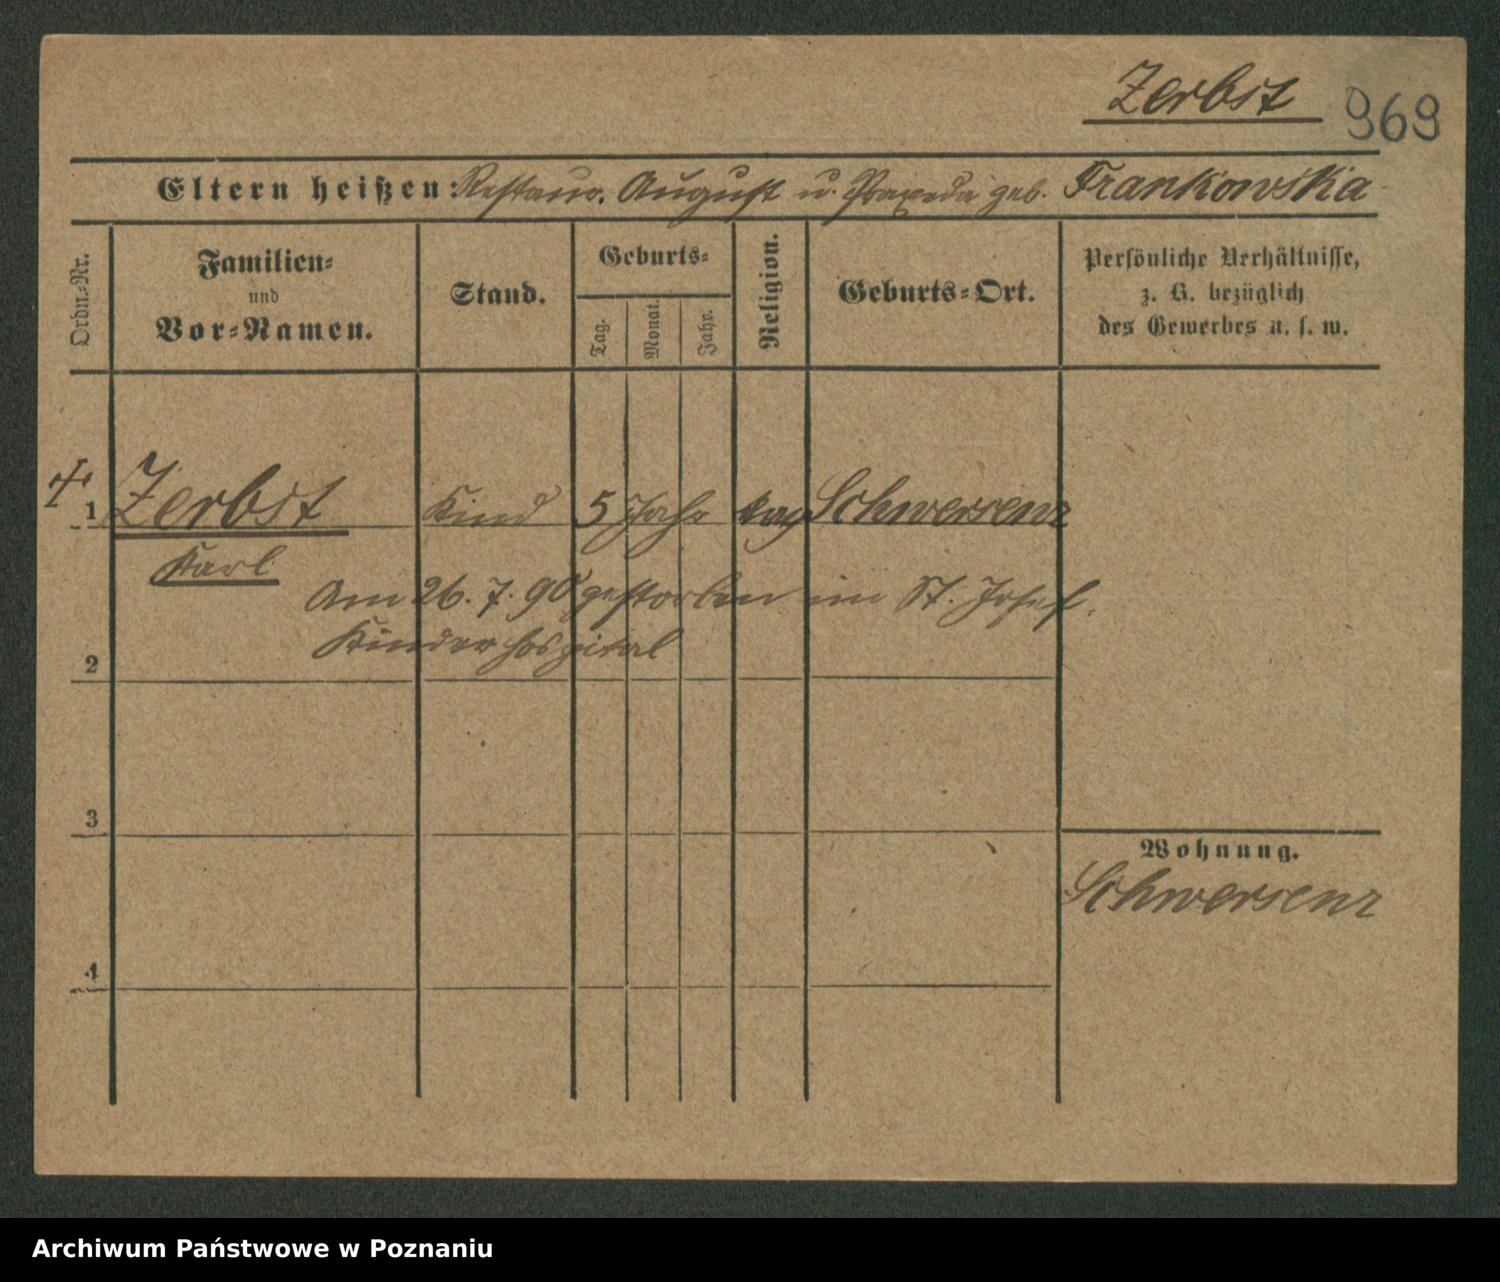 Zerbst 969
Eltern heißen: Restaur. August u. Praxeda geb. Frankowska
Ordn.-Nr.
Familien-
und
Vor-Namen.
Stand.
Geburts-
Tag.
Monat.
Jahr.
Religion.
Geburts-Ort.
Persönliche Verhältnisse,
z. B. bezüglich
des Gewerbes u. s. w.
† 1 Zerbst Kind 5 Jahr kag Schwersenz
Karl
Am 26. 7. 90 gestorben im St. Josef.
Kinderhospital
2
3
Wohnung.
Schwersenz
4
Archiwum Państwowe w Poznaniu